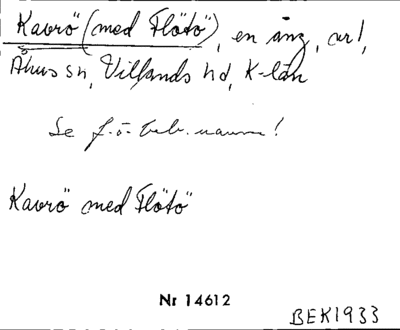 Kavrö (med Flötö), en äng, arl,
Åhus sn, Villands hd, K-län
Se f.ö. beb.namn!
Kavrö med Flötö
Nr 14612
BEK1933